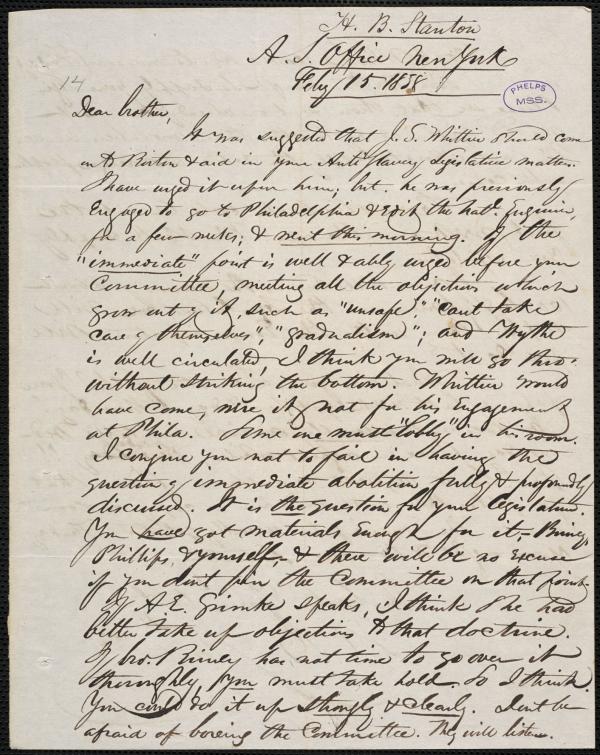 H. B. Stanton
A. S. Office New York
Feby 15. 1838
14
PHELPS
MSS.
Dear brother,
It was suggested that J. G. Whittier should come
on to Boston & aid in your Anti Slavery Legislative matters.
I have urged it upon him; but he was previously
engaged to go to Philadelphia & edit the Natl. Enquirer,
for a few weeks; & went this morning. If the
"immediate" point is well & ably urged before your
Committee, meeting all the objections which
grow out of it, such as "unsafe", "cant take
care of themselves", "gradualism"; and Wythe
is well circulated, I think you will go thro'
without striking the bottom. Whittier would
have come, were it not for his Engagement
at Phila. Some one must "lobby" in his room.
I conjure you not to fail in having the
question of immediate abolition fully & profoundly
discussed. It is the question for your legislature.
You have got materials enough for it,- Birney,
Phillips, & yourself,- & there will be no excuse
if you dont pin the Committee on that point.
If A. E. Grimke speaks, I think she had
better take up objections to that doctrine.
If bro. Birney has not time to go over it
thoroughly, you must take hold. So I think.
You could do it up strongly & clearly. Dont be
afraid of boreing the Committee. They will listen.